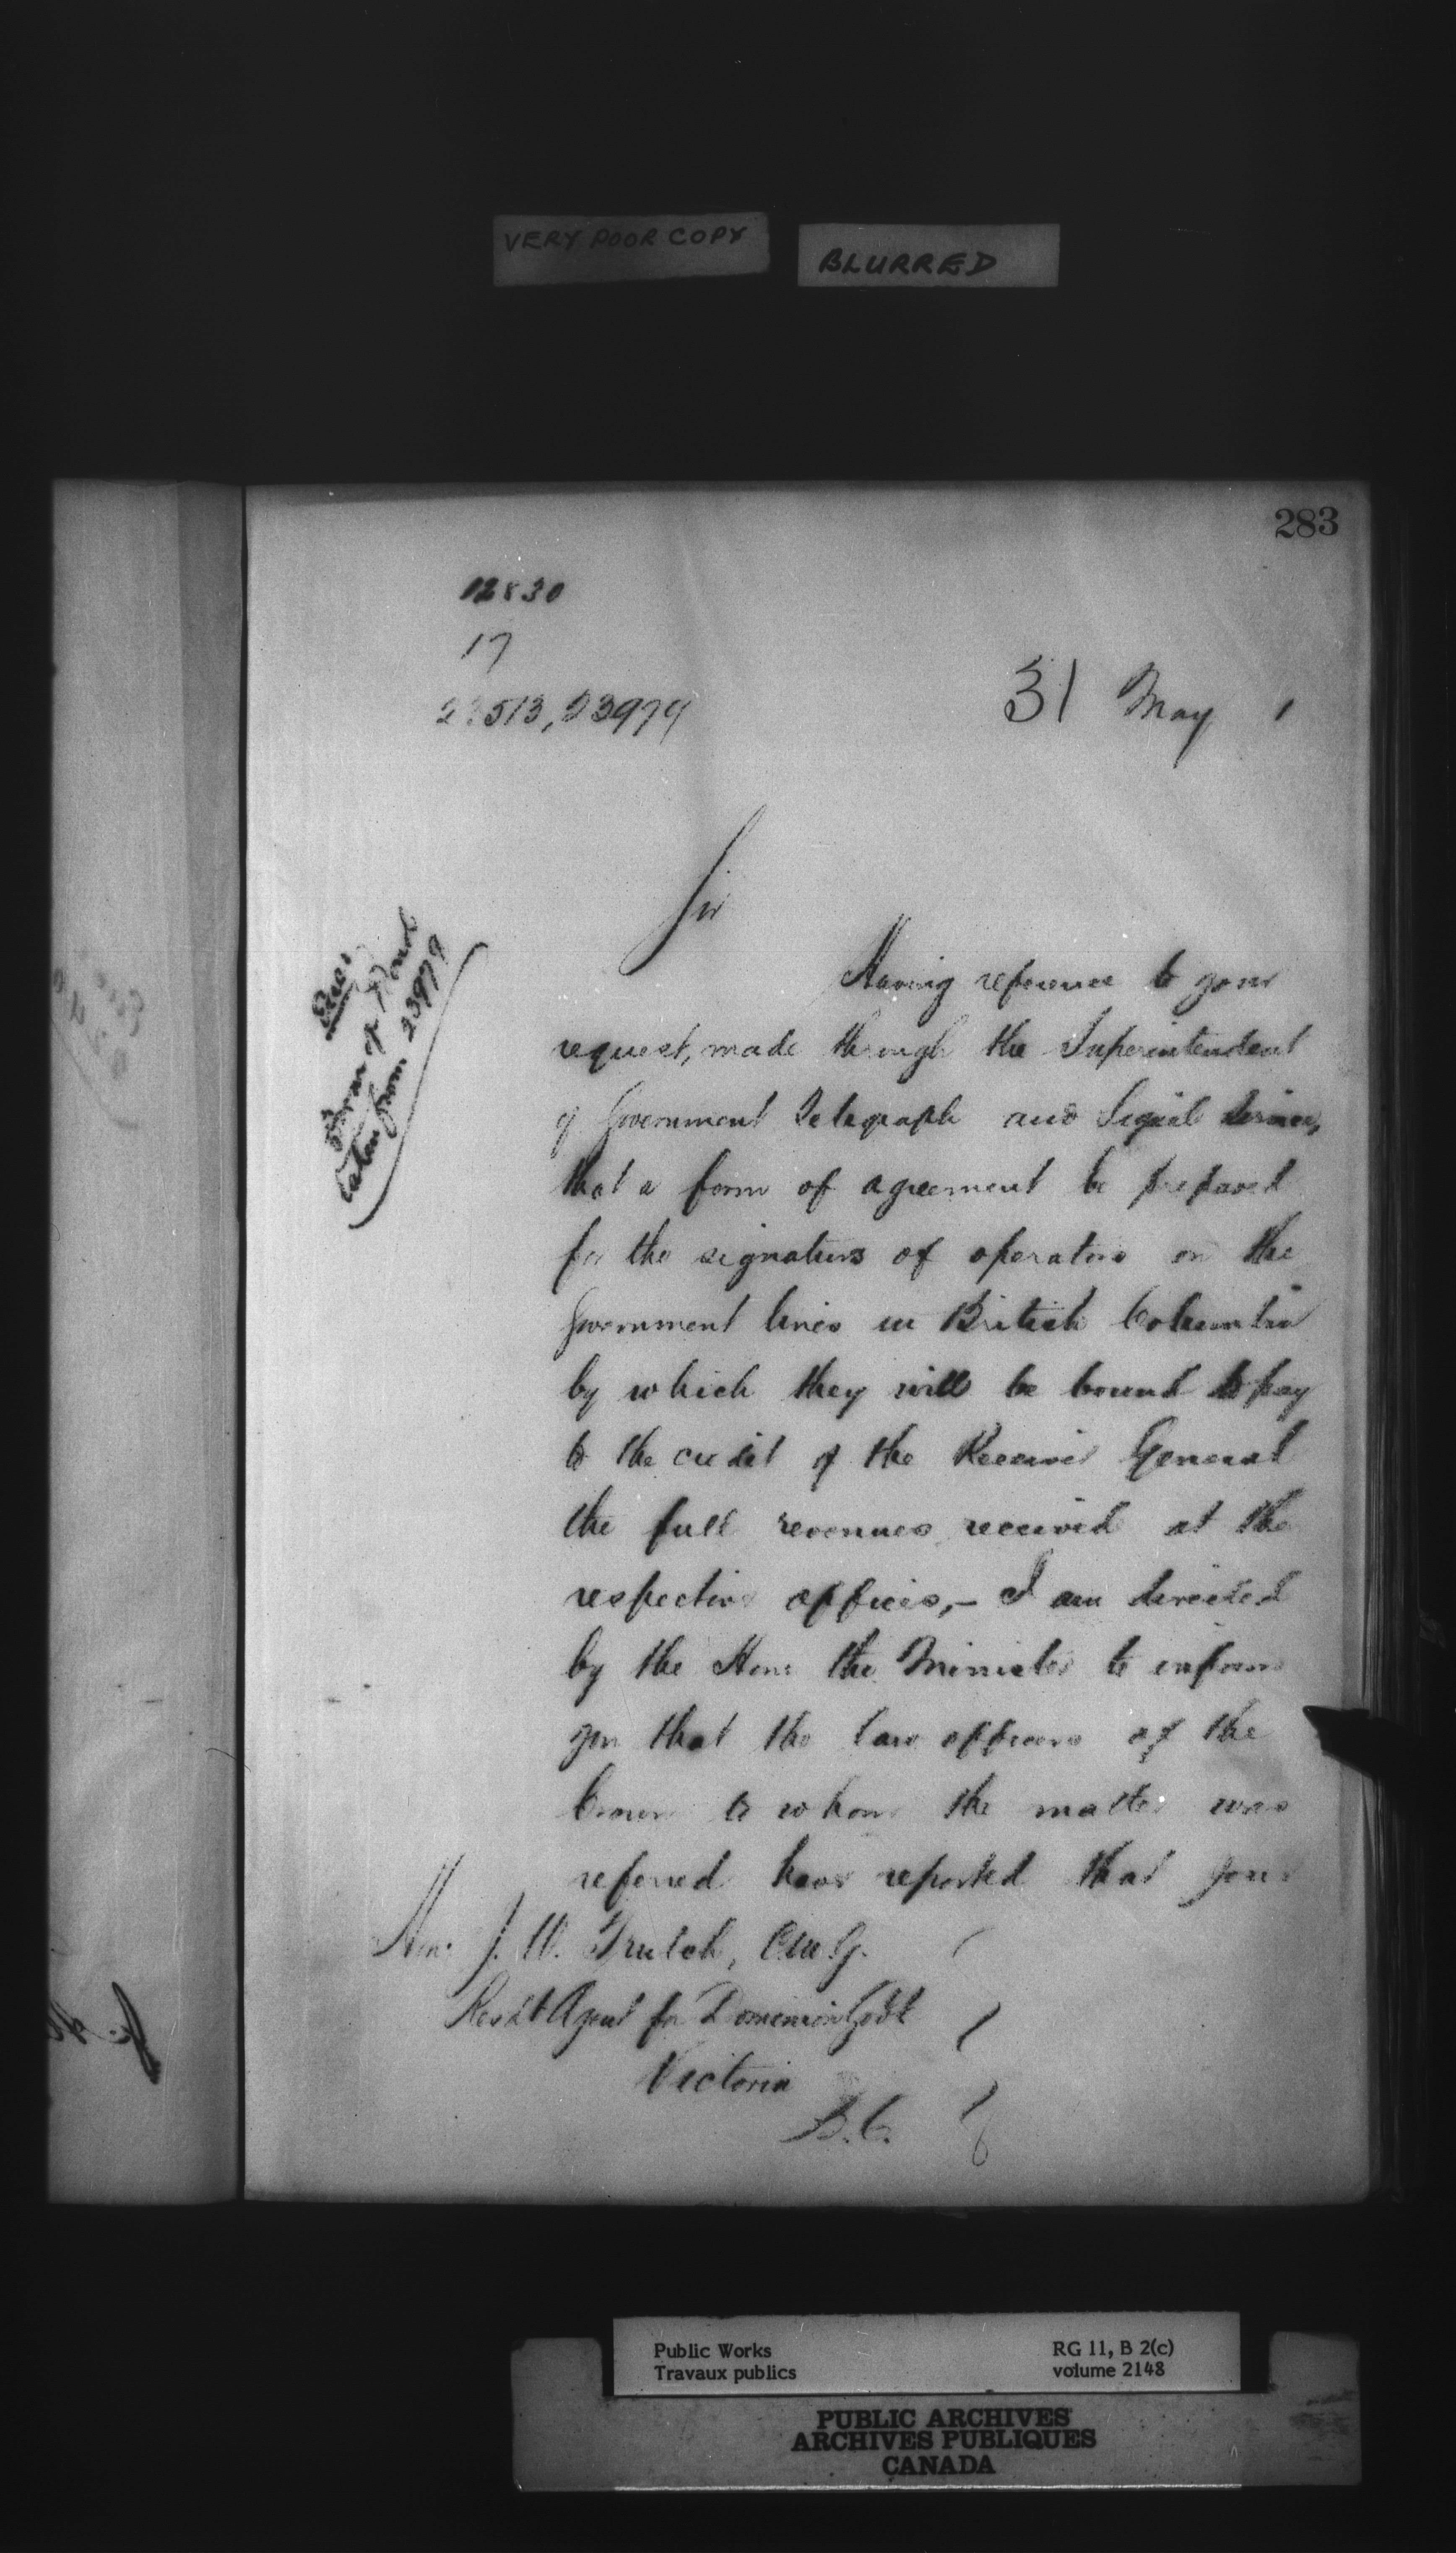 VERY POOR COPY
BLURRED
283
12830
17
23513, 23979
31 May 1
Sir
Having reference to your
request, made through the Superintendent
of Government Telegraph and Signal Service,
that a form of agreement be prepared
for the signatures of operators on the
Government lines in British Columbia
by which they will be bound to pay
to the credit of the Receiver General
the full revenues received at the
respective offices,- I am directed
by the Hon: the Minister to inform
you that the law officers of the
Crown to whom the matter was
referred have reported that your
Encl:
Form of Bond
taken from 23979
Hon: J. W. Trutch, C.M.G.
Resdt Agent for Dominion Govt
Victoria
B.C.
Public Works
Travaux publics
RG 11, B 2(c)
volume 2148
PUBLIC ARCHIVES
ARCHIVES PUBLIQUES
CANADA